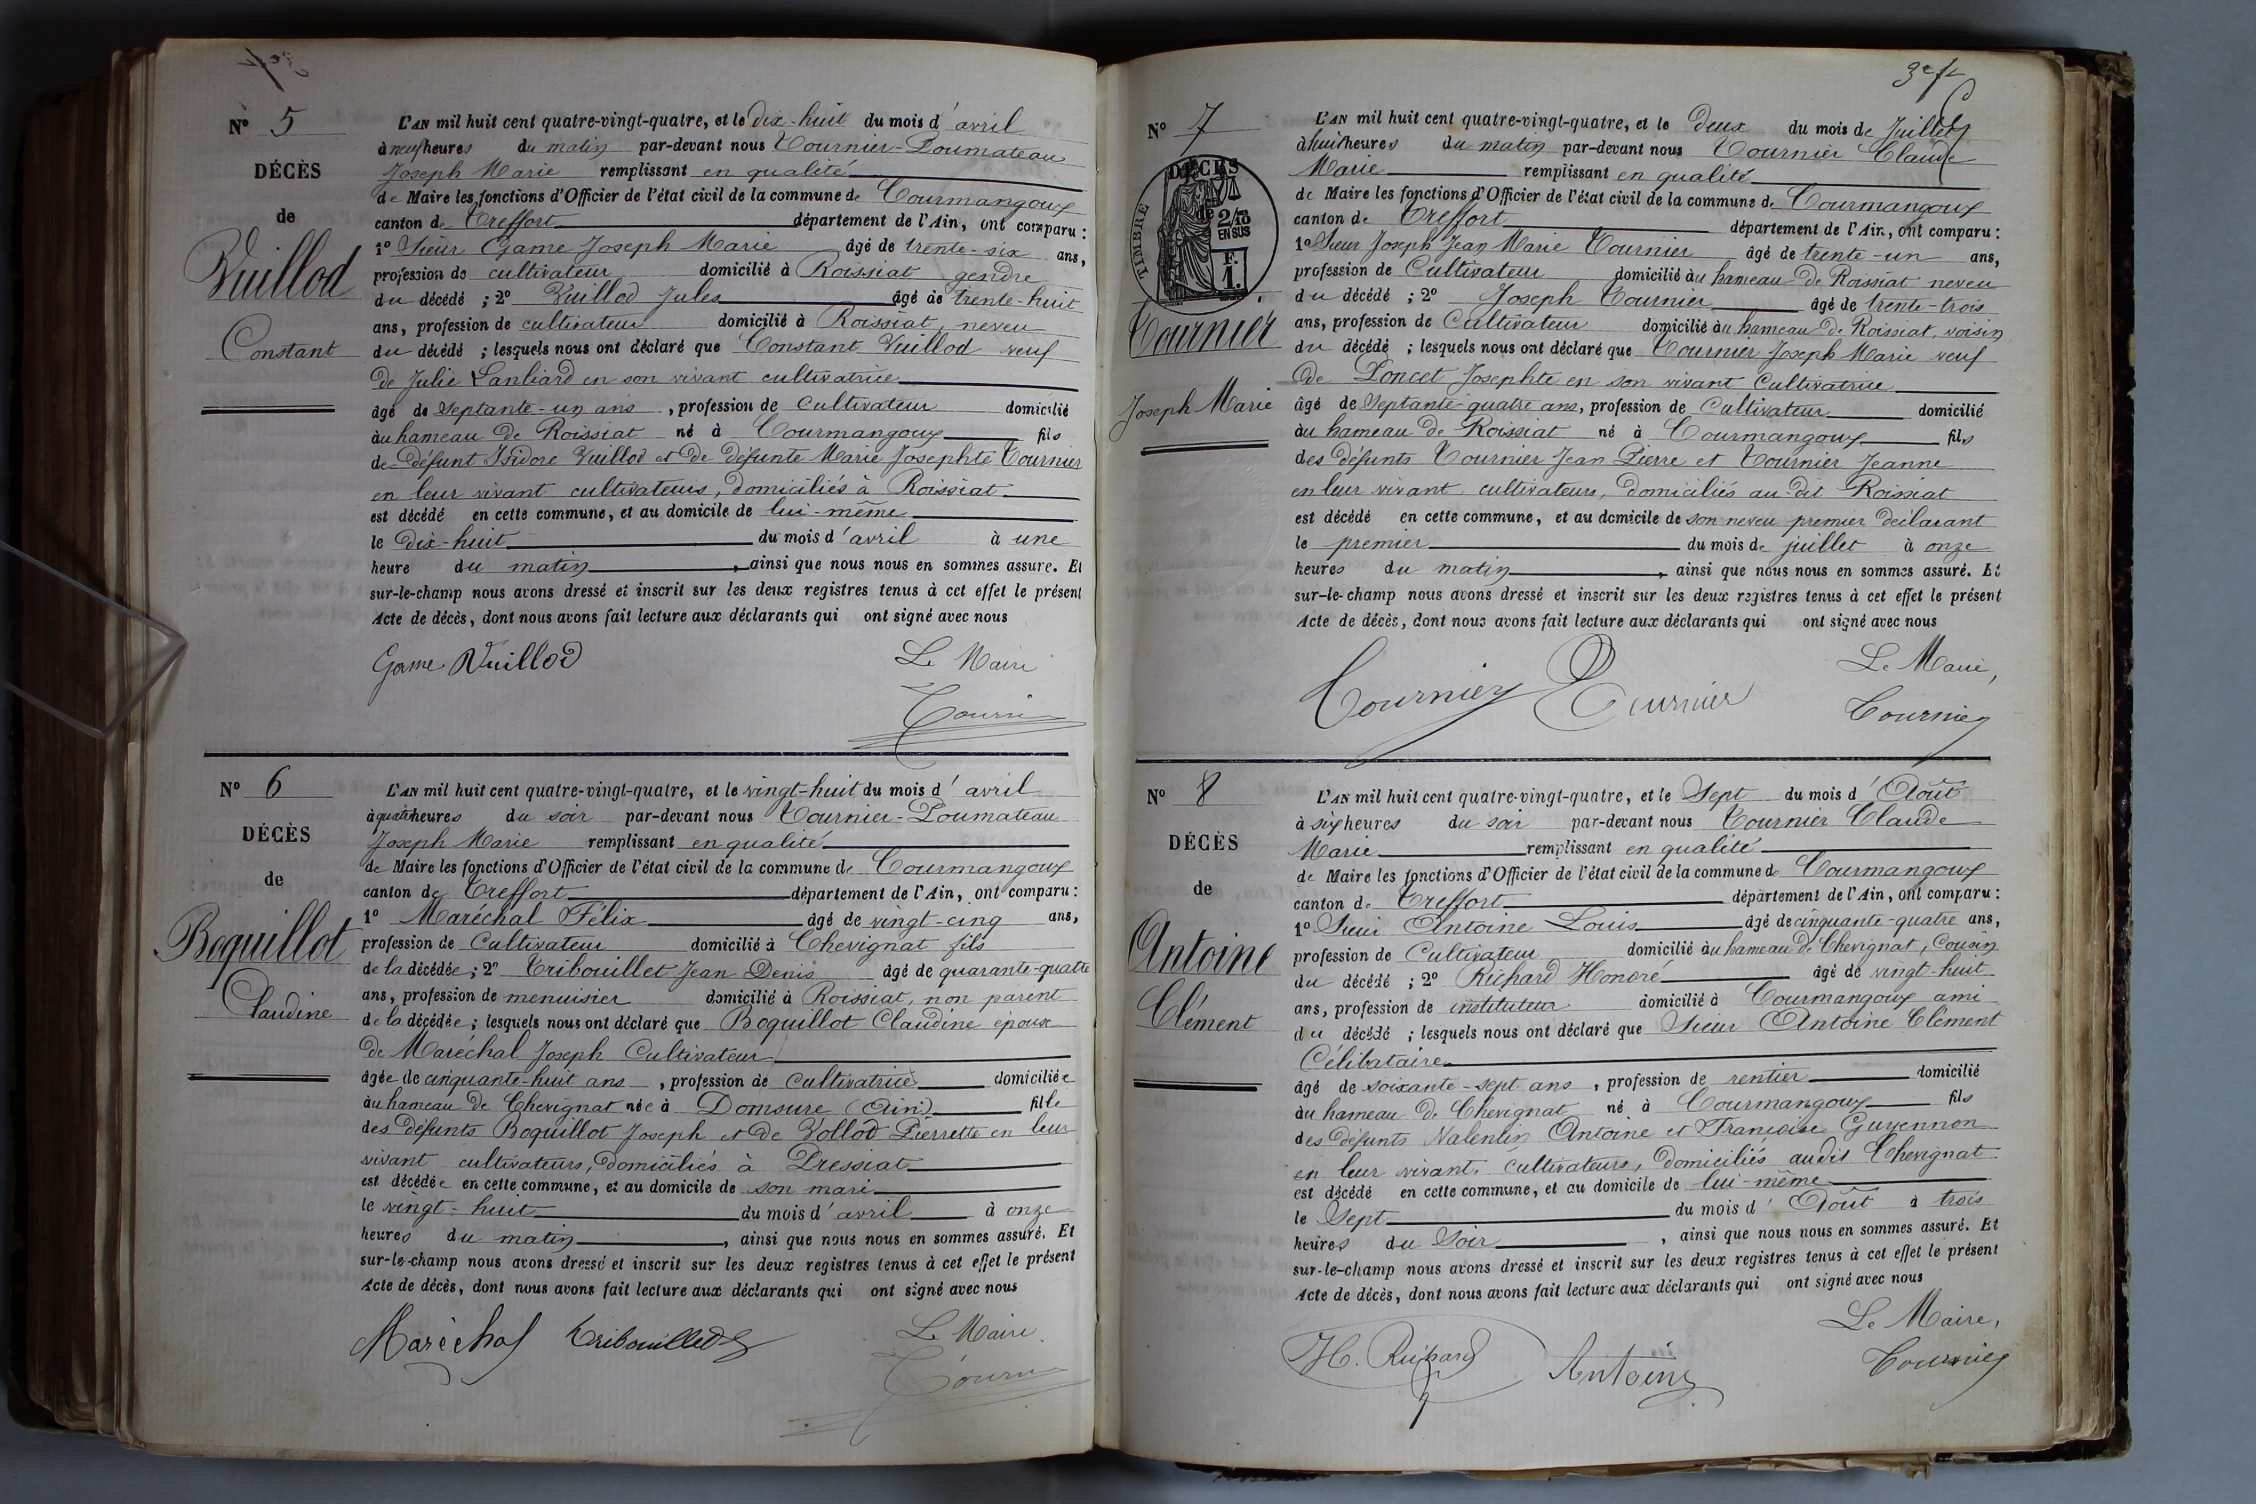 N° 5
DÉCÈS
de
Vuillod
Constant
L'AN mil huit cent quatre-vingt-quatre, et le dix-huit du mois d'avril
à neuf heures du matin par-devant nous Tournier-Poumateau
Joseph Marie remplissant en qualité
de Maire les fonctions d'Officier de l'état civil de la commune de Courmangoux
canton de Treffort département de l'Ain, ont comparu :
1° Sieur Game Joseph Marie âgé de trente-six ans,
profession de cultivateur domicilié à Roissiat gendre
du décédé ; 2° Vuillod Jules âgé de trente-huit
ans, profession de cultivateur domicilié à Roissiat, neveu
du décédé ; lesquels nous ont déclaré que Constant Vuillod veuf
de Julie Lanliard en son vivant cultivatrice
âgé de septante-un ans, profession de Cultivateur domicilié
au hameau de Roissiat né à Courmangoux fils
de défunt Isidore Vuillod et de défunte Marie Josephte Tournier
en leur vivant cultivateurs, domiciliés à Roissiat
est décédé en cette commune, et au domicile de lui-même
le dix-huit du mois d'avril à une
heure du matin, ainsi que nous nous en sommes assuré. Et
sur-le-champ nous avons dressé et inscrit sur les deux registres tenus à cet effet le présent
Acte de décès, dont nous avons fait lecture aux déclarants qui ont signé avec nous
Game Vuillod Le Maire
N° 6
DÉCÈS
de
Boquillot
Claudine
L'AN mil huit cent quatre-vingt-quatre, et le vingt-huit du mois d'avril
à quatre heures du soir par-devant nous Tournier-Poumateau
Joseph Marie remplissant en qualité
de Maire les fonctions d'Officier de l'état civil de la commune de Courmangoux
canton de Treffort département de l'Ain, ont comparu :
1° Maréchal Félix âgé de vingt-cinq ans,
profession de Cultivateur domicilié à Chevignat fils
de la décédée ; 2° Tribouillet Jean Denis âgé de quarante-quatre
ans, profession de menuisier domicilié à Roissiat, non parent
de la décédée ; lesquels nous ont déclaré que Boquillot Claudine épouse
de Maréchal Joseph Cultivateur
âgée de cinquante-huit ans, profession de cultivatrice domiciliée
au hameau de Chevignat née à Domsure (Ain) fille
des défunts Boquillot Joseph et de Vollod Pierrette en leur
vivant cultivateurs, domiciliés à Pressiat
est décédée en cette commune, et au domicile de son mari
le vingt-huit du mois d'avril à onze
heures du matin, ainsi que nous nous en sommes assuré. Et
sur-le-champ nous avons dressé et inscrit sur les deux registres tenus à cet effet le présent
Acte de décès, dont nous avons fait lecture aux déclarants qui ont signé avec nous
Maréchal Tribouillet Le Maire
N° 7
DÉCÈS
de
TIMBRE
2/10
EN SUS
F.
1.
Tournier
Joseph Marie
L'AN mil huit cent quatre-vingt-quatre, et le deux du mois de Juillet
à huit heures du matin par-devant nous Tournier Claude
Marie remplissant en qualité
de Maire les fonctions d'Officier de l'état civil de la commune de Courmangoux
canton de Treffort département de l'Ain, ont comparu :
1° Sieur Joseph Jean Marie Tournier âgé de trente-un ans,
profession de Cultivateur domicilié au hameau de Roissiat neveu
du décédé ; 2° Joseph Tournier âgé de trente-trois
ans, profession de Cultivateur domicilié au hameau de Roissiat, voisin
du décédé ; lesquels nous ont déclaré que Tournier Joseph Marie veuf
de Poncet Josephte en son vivant Cultivatrice
âgé de septante-quatre ans, profession de Cultivateur domicilié
au hameau de Roissiat né à Courmangoux fils
des défunts Tournier Jean Pierre et Tournier Jeanne
en leur vivant cultivateurs, domiciliés au dit Roissiat
est décédé en cette commune, et au domicile de son neveu premier déclarant
le premier du mois de juillet à onze
heures du matin, ainsi que nous nous en sommes assuré. Et
sur-le-champ nous avons dressé et inscrit sur les deux registres tenus à cet effet le présent
Acte de décès, dont nous avons fait lecture aux déclarants qui ont signé avec nous
Tournier Tournier Le Maire,
Tournier
N° 8
DÉCÈS
de
Antoine
Clément
L'AN mil huit cent quatre-vingt-quatre, et le Sept du mois d'Août
à six heures du soir par-devant nous Tournier Claude
Marie remplissant en qualité
de Maire les fonctions d'Officier de l'état civil de la commune de Courmangoux
canton de Treffort département de l'Ain, ont comparu :
1° Sieur Antoine Louis âgé de cinquante-quatre ans,
profession de Cultivateur domicilié au hameau de Chevignat, Cousin
du décédé ; 2° Richard Honoré âgé de vingt-huit
ans, profession de instituteur domicilié à Courmangoux ami
du décédé ; lesquels nous ont déclaré que Sieur Antoine Clément
Célibataire
âgé de soixante-sept ans, profession de rentier domicilié
au hameau de Chevignat né à Courmangoux fils
des défunts Valentin Antoine et Françoise Guyennon
en leur vivant, cultivateurs, domiciliés audit Chevignat
est décédé en cette commune, et au domicile de lui-même
le Sept du mois d'Août à trois
heures du Soir, ainsi que nous nous en sommes assuré. Et
sur-le-champ nous avons dressé et inscrit sur les deux registres tenus à cet effet le présent
Acte de décès, dont nous avons fait lecture aux déclarants qui ont signé avec nous
H. Richard Antoine Le Maire,
Tournier